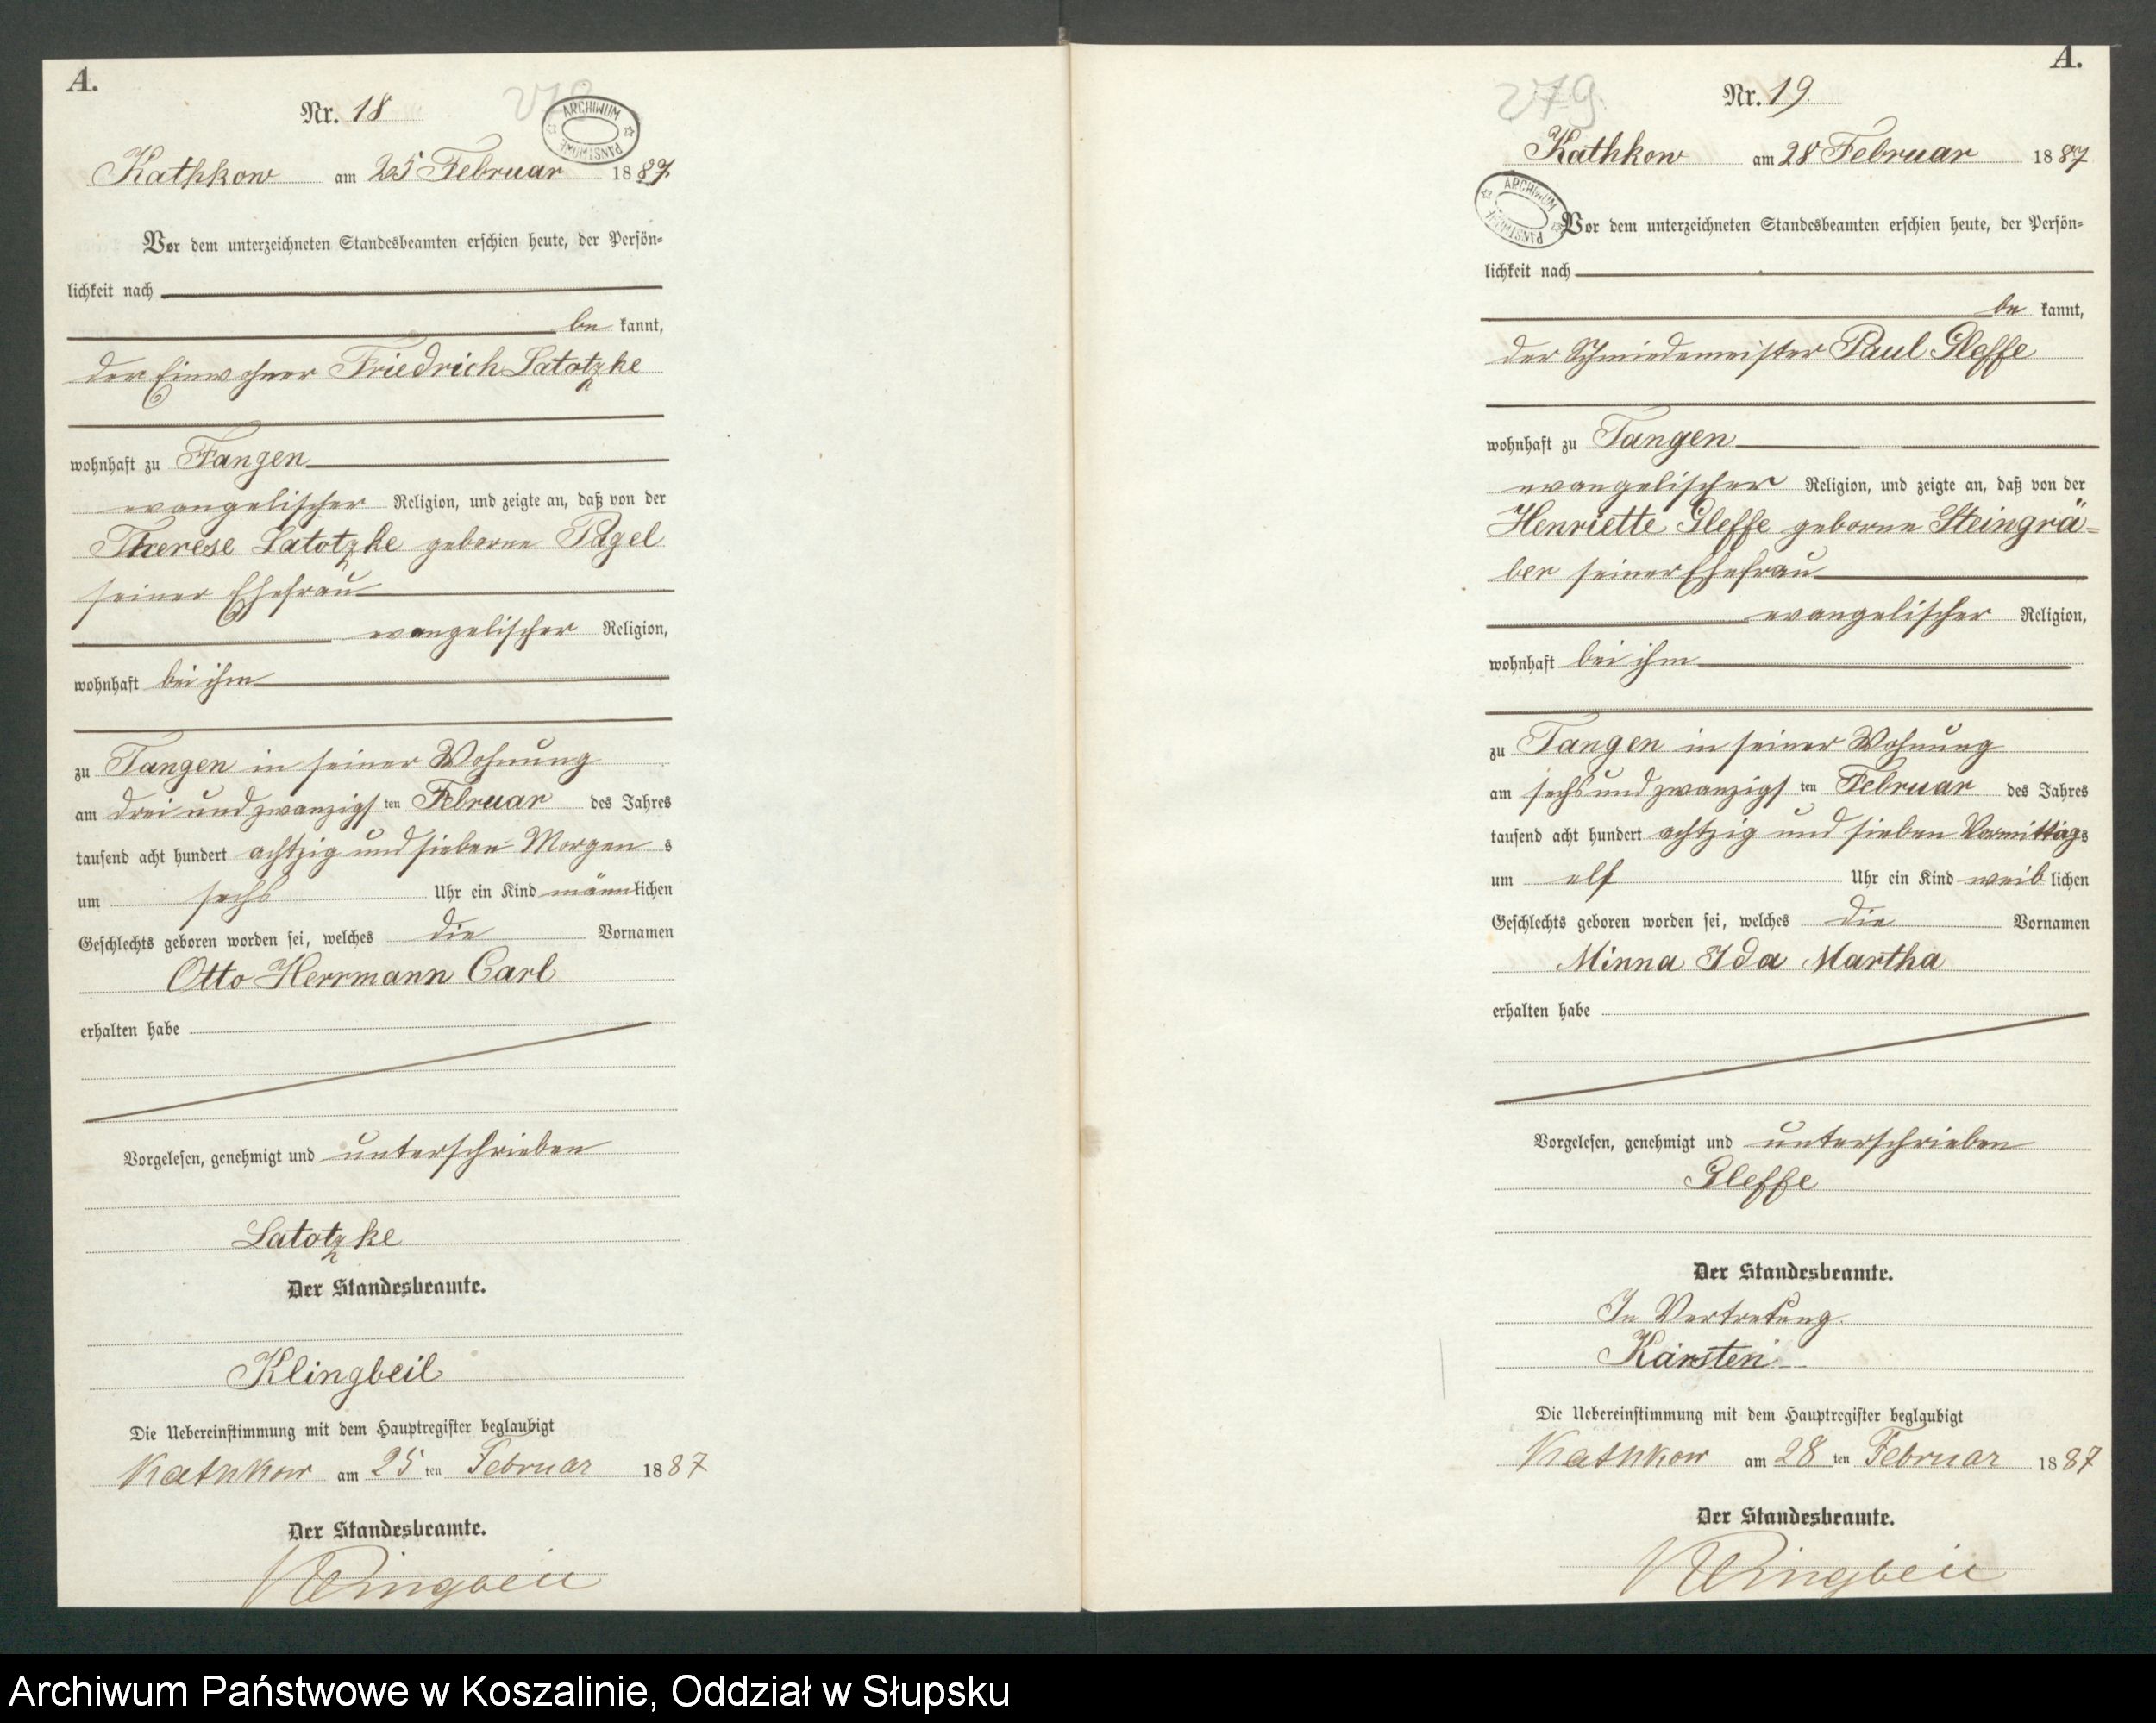 A.
Nr. 18
ARCHIWUM PAŃSTWOWE
Kathkow am 25 Februar 1887
Vor dem unterzeichneten Standesbeamten erschien heute, der Persön-
lichkeit nach
be kannt,
der Einwohner Friedrich Latotzke
wohnhaft zu Tangen
evangelischer Religion, und zeigte an, daß von der
Therese Latotzke geborne Pagel
seiner Ehefrau
evangelischer Religion,
wohnhaft bei ihm
zu Tangen in seiner Wohnung
am drei und zwanzigs ten Februar des Jahres
tausend acht hundert achtzig und sieben Morgen s
um sechs Uhr ein Kind männlichen
Geschlechts geboren worden sei, welches die Vornamen
Otto Herrmann Carl
erhalten habe
Vorgelesen, genehmigt und unterschrieben
Latotzke
Der Standesbeamte.
Klingbeil
Die Uebereinstimmung mit dem Hauptregister beglaubigt
Kathkow am 25 ten Februar 1887
Der Standesbeamte.
Klingbeil
A.
279.
Nr. 19.
Kathkow am 28 Februar 1887
ARCHIWUM PAŃSTWOWE
Vor dem unterzeichneten Standesbeamten erschien heute, der Persön-
lichkeit nach
be kannt,
der Schmiedemeister Paul Gleffe
wohnhaft zu Tangen
evangelischer Religion, und zeigte an, daß von der
Henriette Gleffe geborne Steingrä-
ber seiner Ehefrau
evangelischer Religion,
wohnhaft bei ihm
zu Tangen in seiner Wohnung
am sechs und zwanzigs ten Februar des Jahres
tausend acht hundert achtzig und sieben Vormittags
um elf Uhr ein Kind weib lichen
Geschlechts geboren worden sei, welches die Vornamen
Minna Ida Martha
erhalten habe
Vorgelesen, genehmigt und unterschrieben
Gleffe
Der Standesbeamte.
In Vertretung.
Karsten
Die Uebereinstimmung mit dem Hauptregister beglaubigt
Kathkow am 28 ten Februar 1887
Der Standesbeamte.
Klingbeil
Archiwum Państwowe w Koszalinie, Oddział w Słupsku